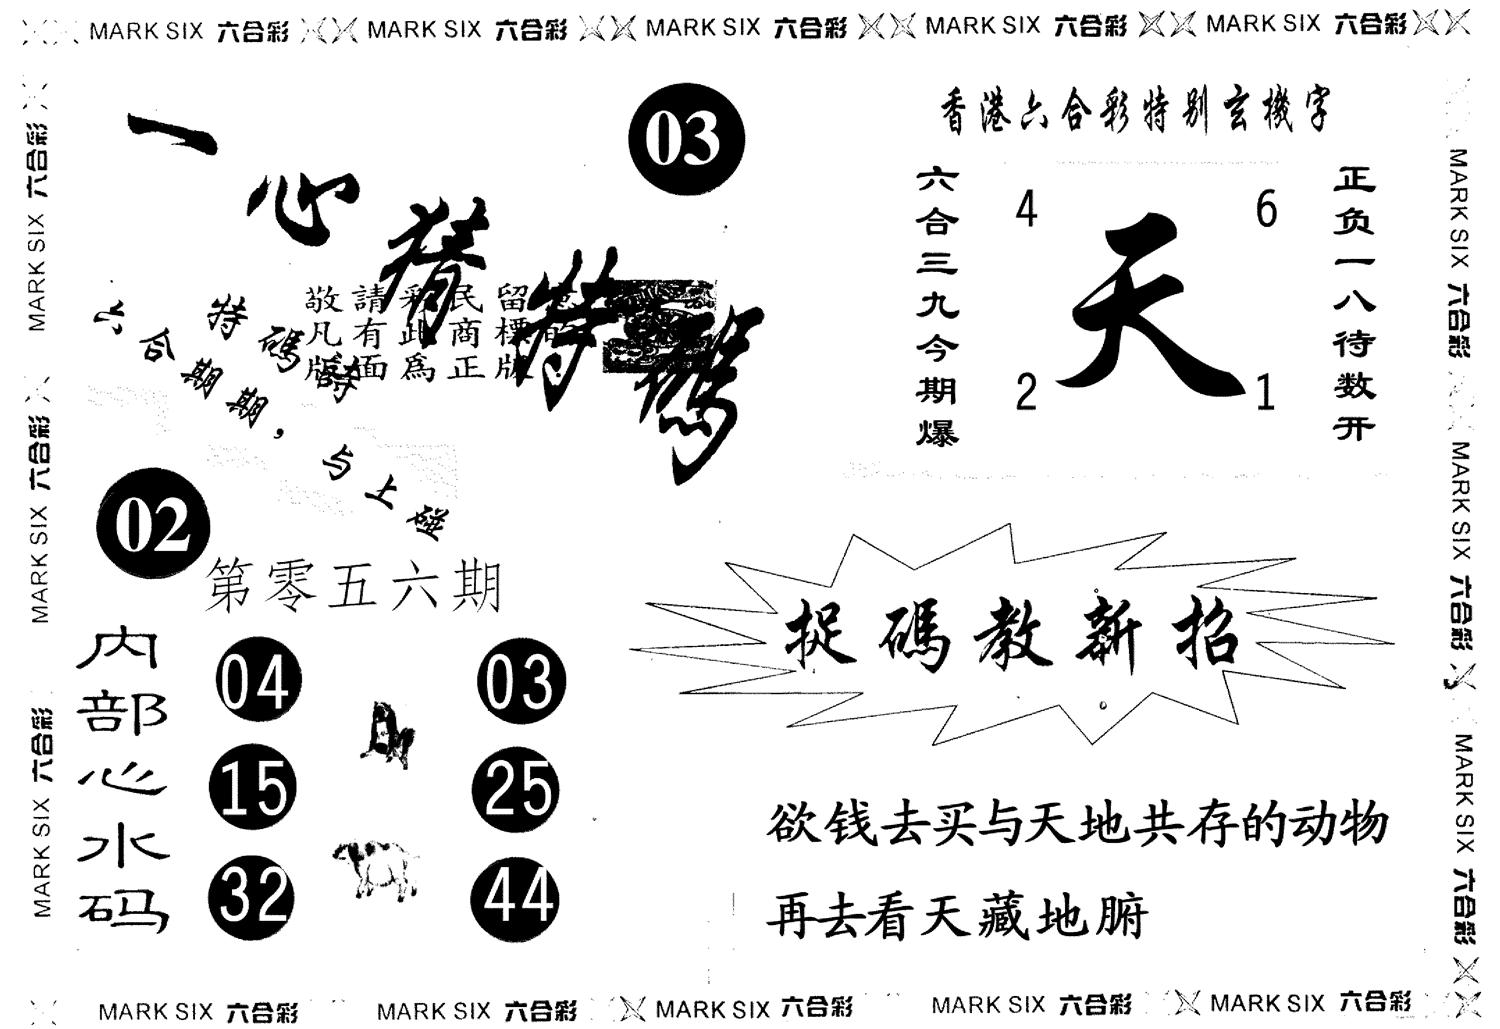 MARK SIX 六合彩 MARK SIX 六合彩 MARK SIX 六合彩 MARK SIX 六合彩 MARK SIX 六合彩
MARK SIX 六合彩
MARK SIX 六合彩
MARK SIX 六合彩
一心猜特碼
03
敬請彩民留意
凡有此商標的
版面為正版
特碼詩
六合期期，与上碰
02
第零五六期
内部心水码
04 03
15 25
32 44
香港六合彩特别玄機字
六合三九今期爆
4 6
天
2 1
正负一八待数开
捉碼教新招
欲钱去买与天地共存的动物
再去看天藏地腑
MARK SIX 六合彩
MARK SIX 六合彩
MARK SIX 六合彩
MARK SIX 六合彩 MARK SIX 六合彩 MARK SIX 六合彩 MARK SIX 六合彩 MARK SIX 六合彩